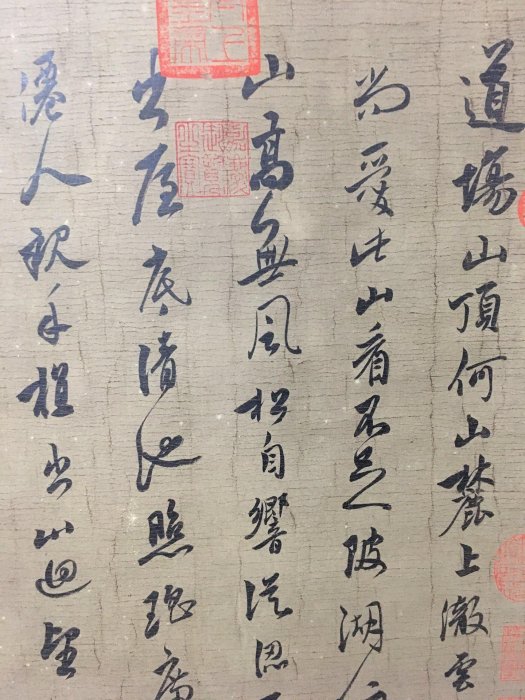 道塲山頂何山麓上澈雲
尚愛此山看不足陂湖
山高無風松自響誤認
出屋底清池照瑤席
僊人親手植出山迴望